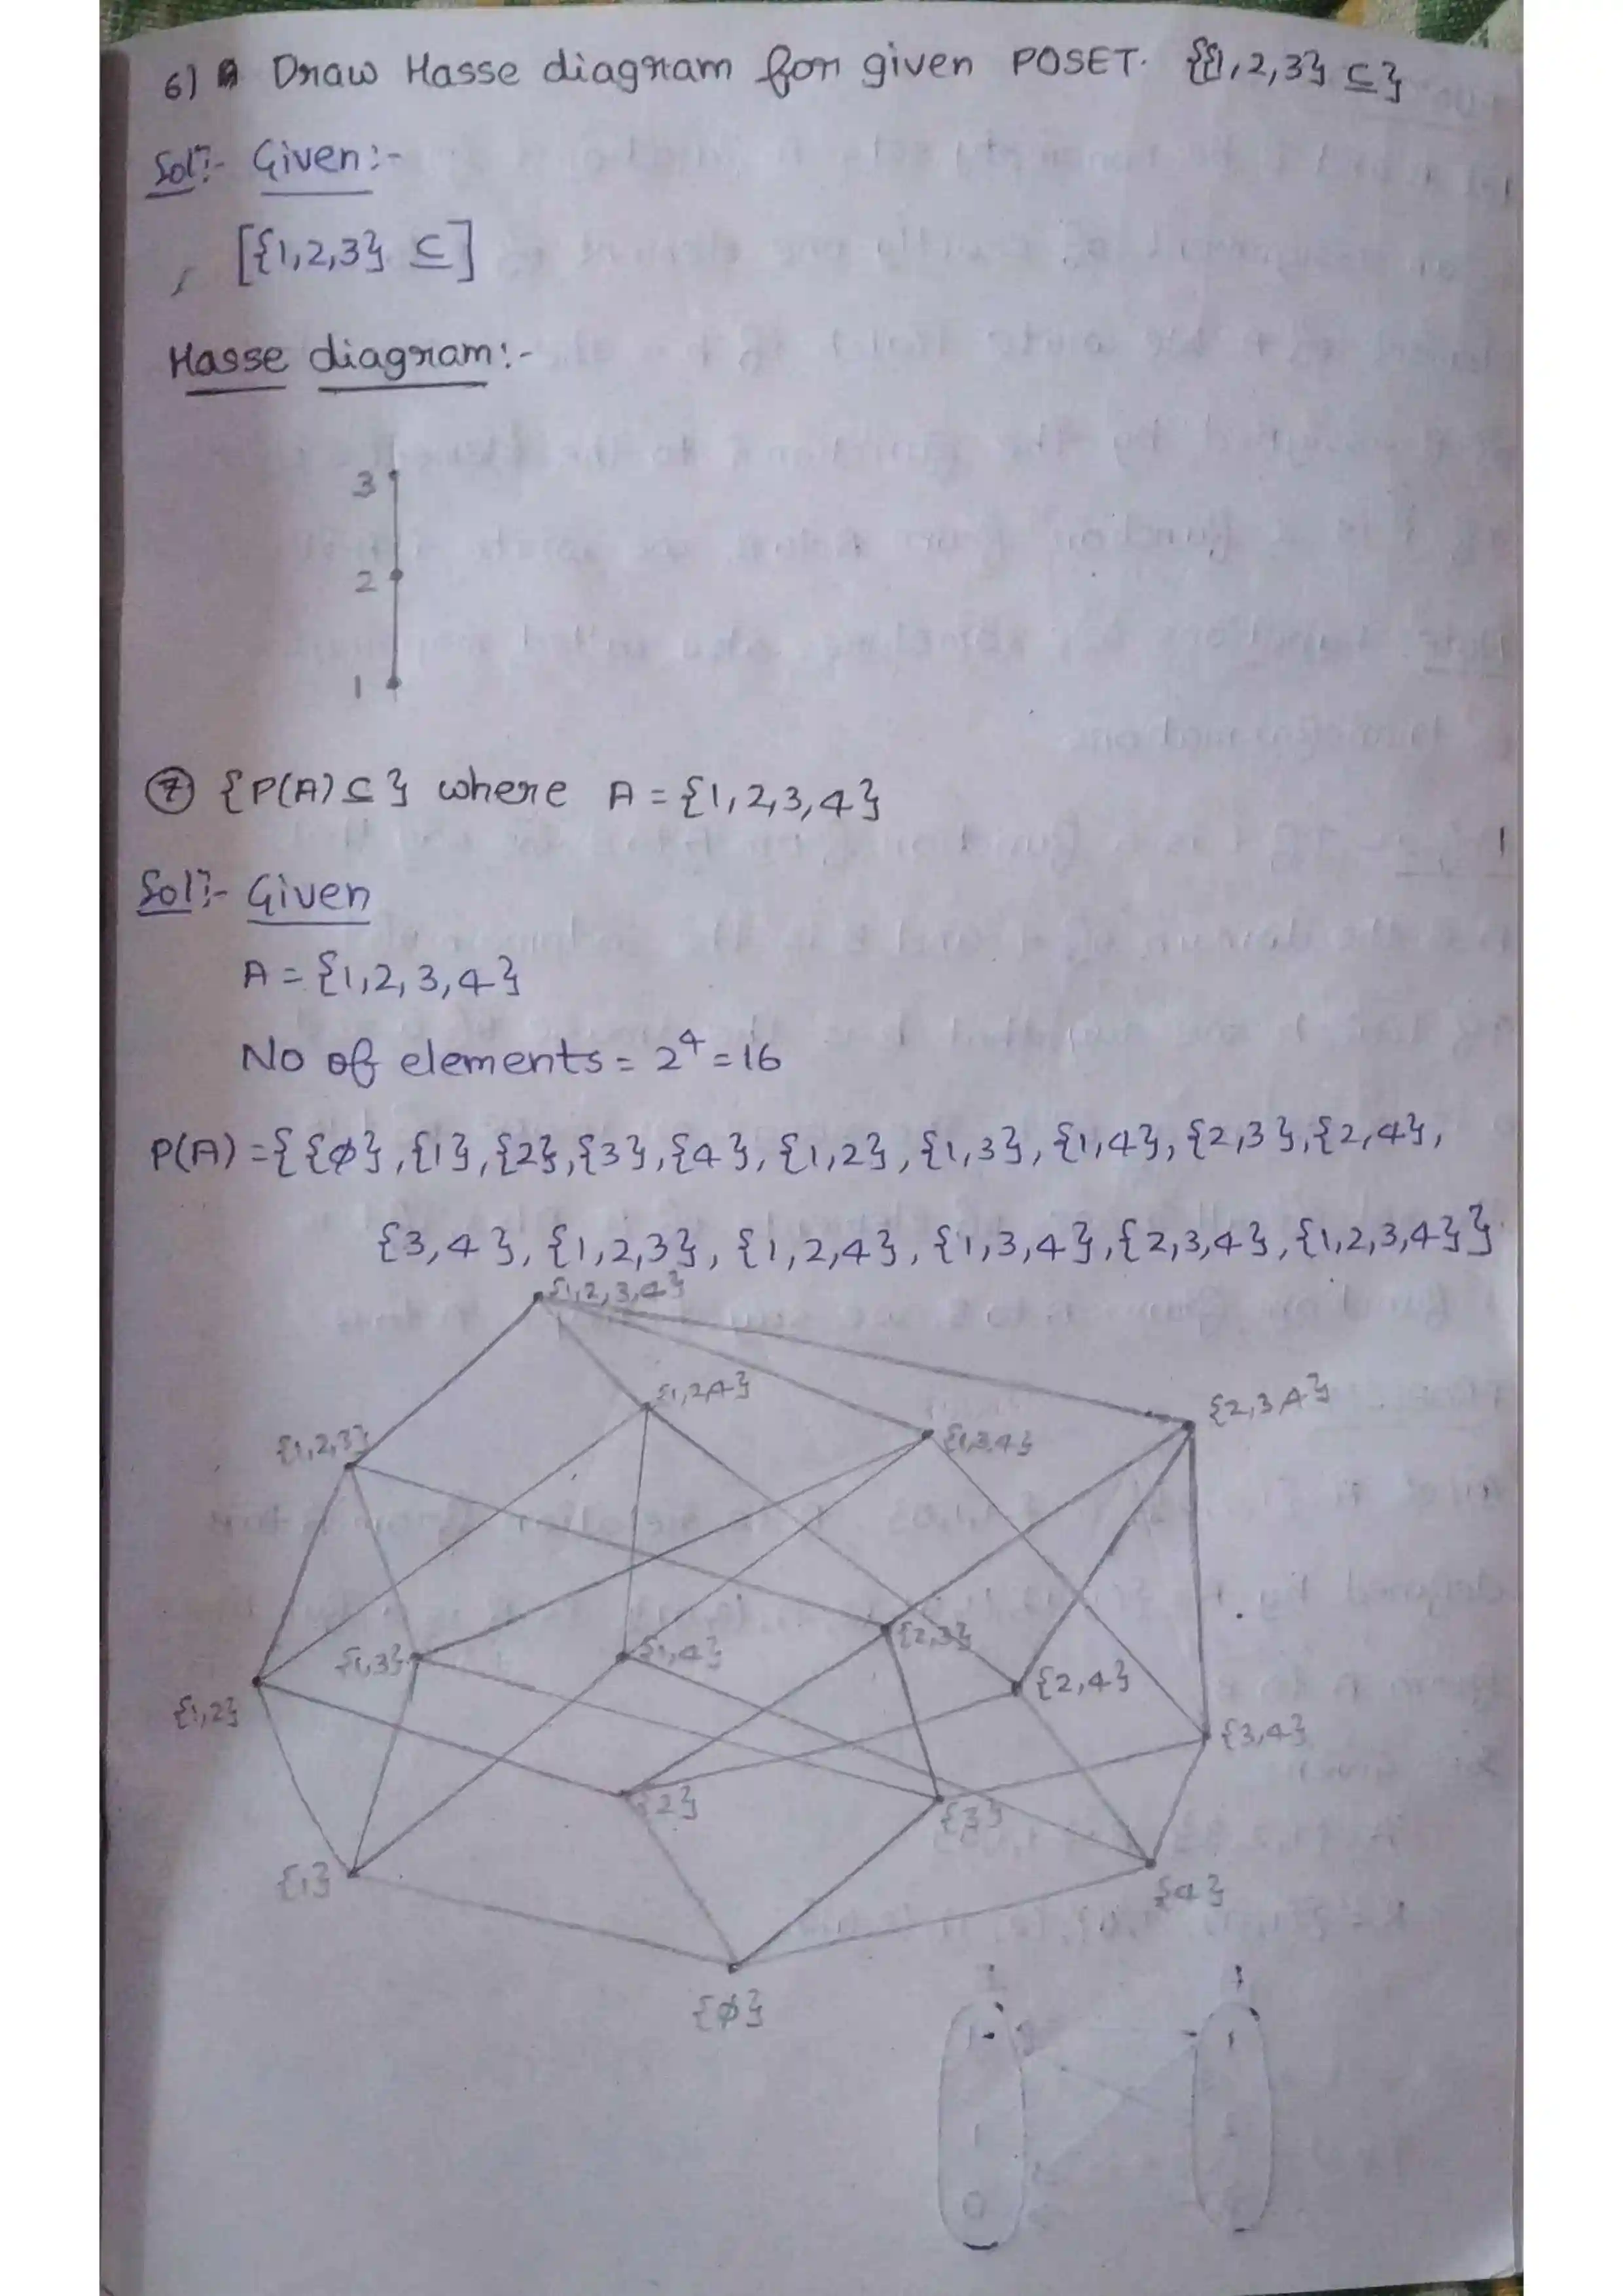 6) Draw Hasse diagram for given POSET. {{1,2,3} ⊆}
Sol:- Given:-
[{1,2,3} ⊆]
Hasse diagram:-
3
2
1
⑦ {P(A) ⊆} where A = {1,2,3,4}
Sol:- Given
A = {1,2,3,4}
No of elements = 2⁴ = 16
P(A) = {{ϕ}, {1}, {2}, {3}, {4}, {1,2}, {1,3}, {1,4}, {2,3}, {2,4},
{3,4}, {1,2,3}, {1,2,4}, {1,3,4}, {2,3,4}, {1,2,3,4}}
{1,2,3,4}
{1,2,4}
{2,3,4}
{1,2,3}
{1,3,4}
{1,3}
{1,4}
{2,3}
{2,4}
{1,2}
{3,4}
{2}
{3}
{1}
{4}
{ϕ}